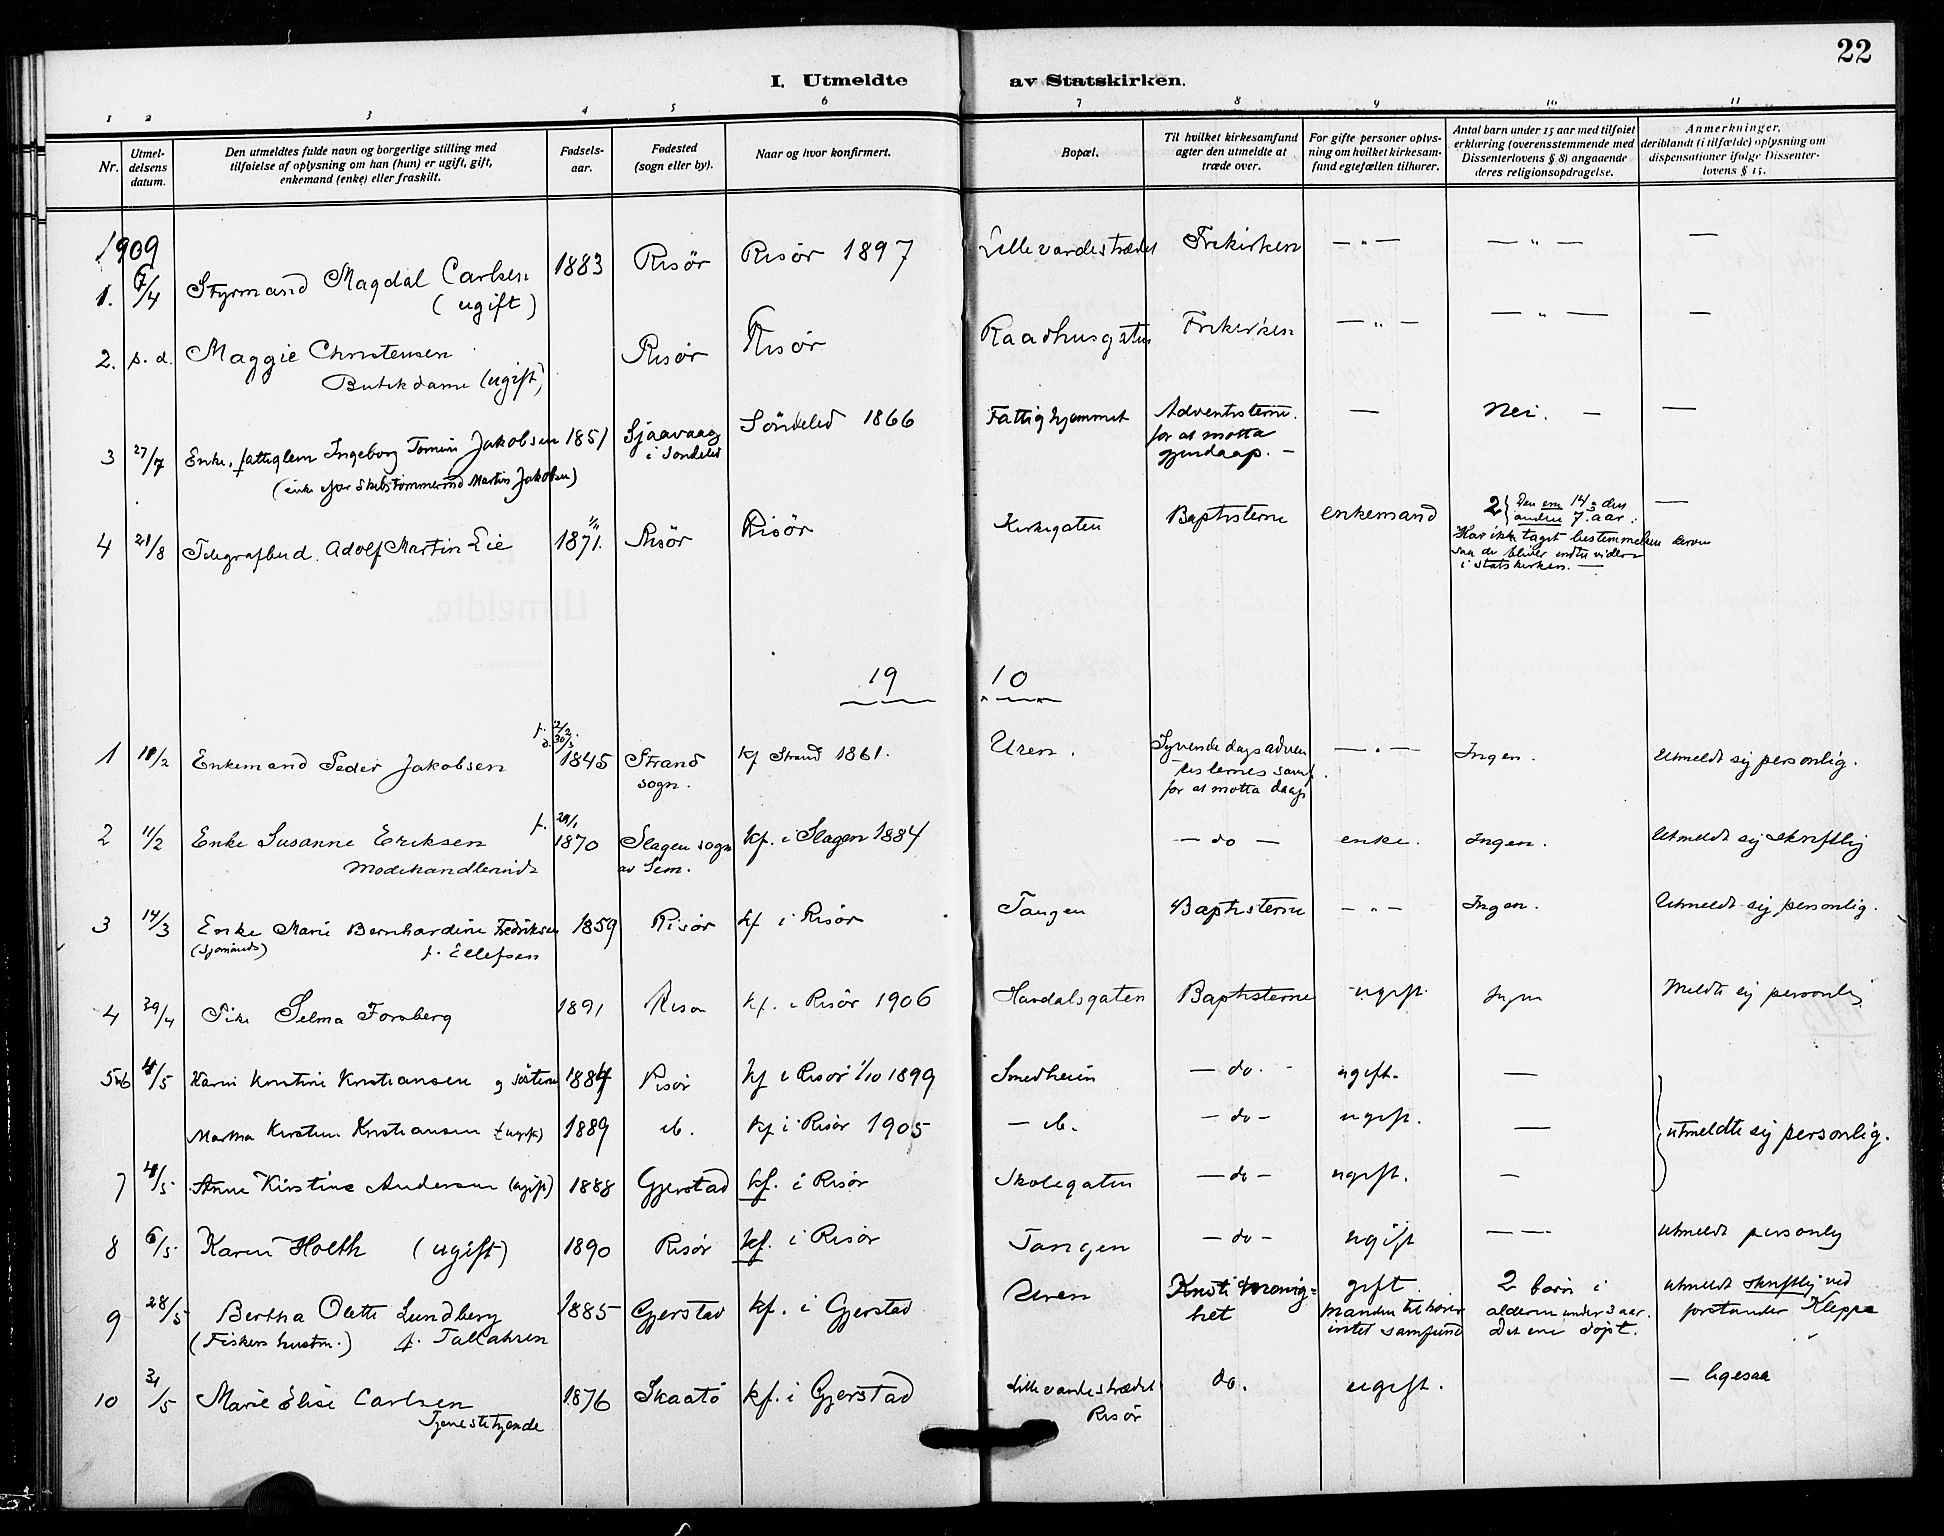 22
I. Utmeldte av Statskirken.
1 2 3 4 5 6 7 8 9 10 11
Nr.
Utmel-
delsens
datum.
Den utmeldtes fulde navn og borgerlige stilling med
tilføielse af oplysning om han (hun) er ugift, gift,
enkemand (enke) eller fraskilt.
Fødsels-
aar.
Fødested
(sogn eller by).
Naar og hvor konfirmert.
Bopæl.
Til hvilket kirkesamfund
agter den utmeldte at
træde over.
For gifte personer oplys-
ning om hvilket kirkesam-
fund egtefællen tilhører.
Antal barn under 15 aar med tilføiet
erklæring (overensstemmende med
Dissenterlovens § 8) angaaende
deres religionsopdragelse.
Anmerkninger,
deriblandt (i tilfælde) oplysning om
dispensationer ifølge Dissenter-
lovens § 15.
1909
1. 6/4 Styrmand Magdal Carlsen 1883 Risör Risör 1897 Lillevardestrædet Frikirken — „ — — „ — —
(ugift)
2. s. d. Maggie Christensen Risör Risör Raadhusgaten Frikirken — „ — — „ — —
Butikdame (ugift)
3 27/7 Enke, fattiglem Ingeborg Tomine Jakobsen 1851 Sjaavaag Söndeled 1866 Fattighjemmet Adventisterne. — Nei. — —
i Söndeled for at motta
gjendaap. —
(enke efter Skibstømmermd Martin Jakobsen)
4 21/8 Telegrafbud. Adolf Martin Lie 1871. Risör Risör Kirkegaten Baptisterne enkemand 2 { Den ene 14 3 den —
andre 7. aar.
Har ikke taget bestemmelse derom
saa de bliver endnu videre
i statskirken. —
19 10
1 11/2 Enkemand Peder Jakobsen f. 2/2 d. 30/3 1845 Strand kf Strand 1861. Uren. Syvende dags adven — „ — Ingen. Utmeldt sig personlig.
sogn. tisternes samf.
for at motta daap
2 11/2 Enke Susanne Eriksen f. 1870 Slagen sogn kf. i Slagen 1884 — do — enke. Ingen. Utmeldt sig skriftlig
Modehandlerinde av Sem.
3 14/3 Enke Marie Bernhardine Fredriksen 1859 Risör kf i Risör Tangen Baptisterne — „ — Ingen. Utmeldt sig personlig.
(Sjømands) f. Ellefsen
4 29/4 Pike Selma Forsberg 1891 Risør kf. i Risör 1906 Havdalsgaten Baptisterne ugift. Ingen Meldte sig personlig
5 &6 4/5 Karen Kristine Kristiansen og söstern 1884 Risör kf i Risör 1/10 1899 Smedheien — do. - ugift. —
Martha Kirstine Kristiansen (ugift) 1889 ib. kf i Risör 1905 — ib. — do — ugift. — utmeldte sig personlig.
7 4/5 Anne Kirstine Andersen (ugift) 1888 Gjerstad kf. i Risör Skolegaten — do — ugift. —
8 6/5 Karen Holth (ugift) 1890 Risör kf. i Risör Tangen — do — ugift — — utmeldt personlig
9 28/5 Bertha Olette Lundberg 1885 Gjerstad kf. i Gjerstad Uren gift. 2 børn i utmeldt skriftlig ved
(Fiskers hustru.) het manden tilhører alderen under 3 aar. forstander Kleppe
intet samfund det ene döpt.
10 31/5 Marie Elise Carlsen 1876 Skaatö kf. i Gjerstad Lillevardestrædet do. ugift. — ligesaa
Tjenestetjende Risör